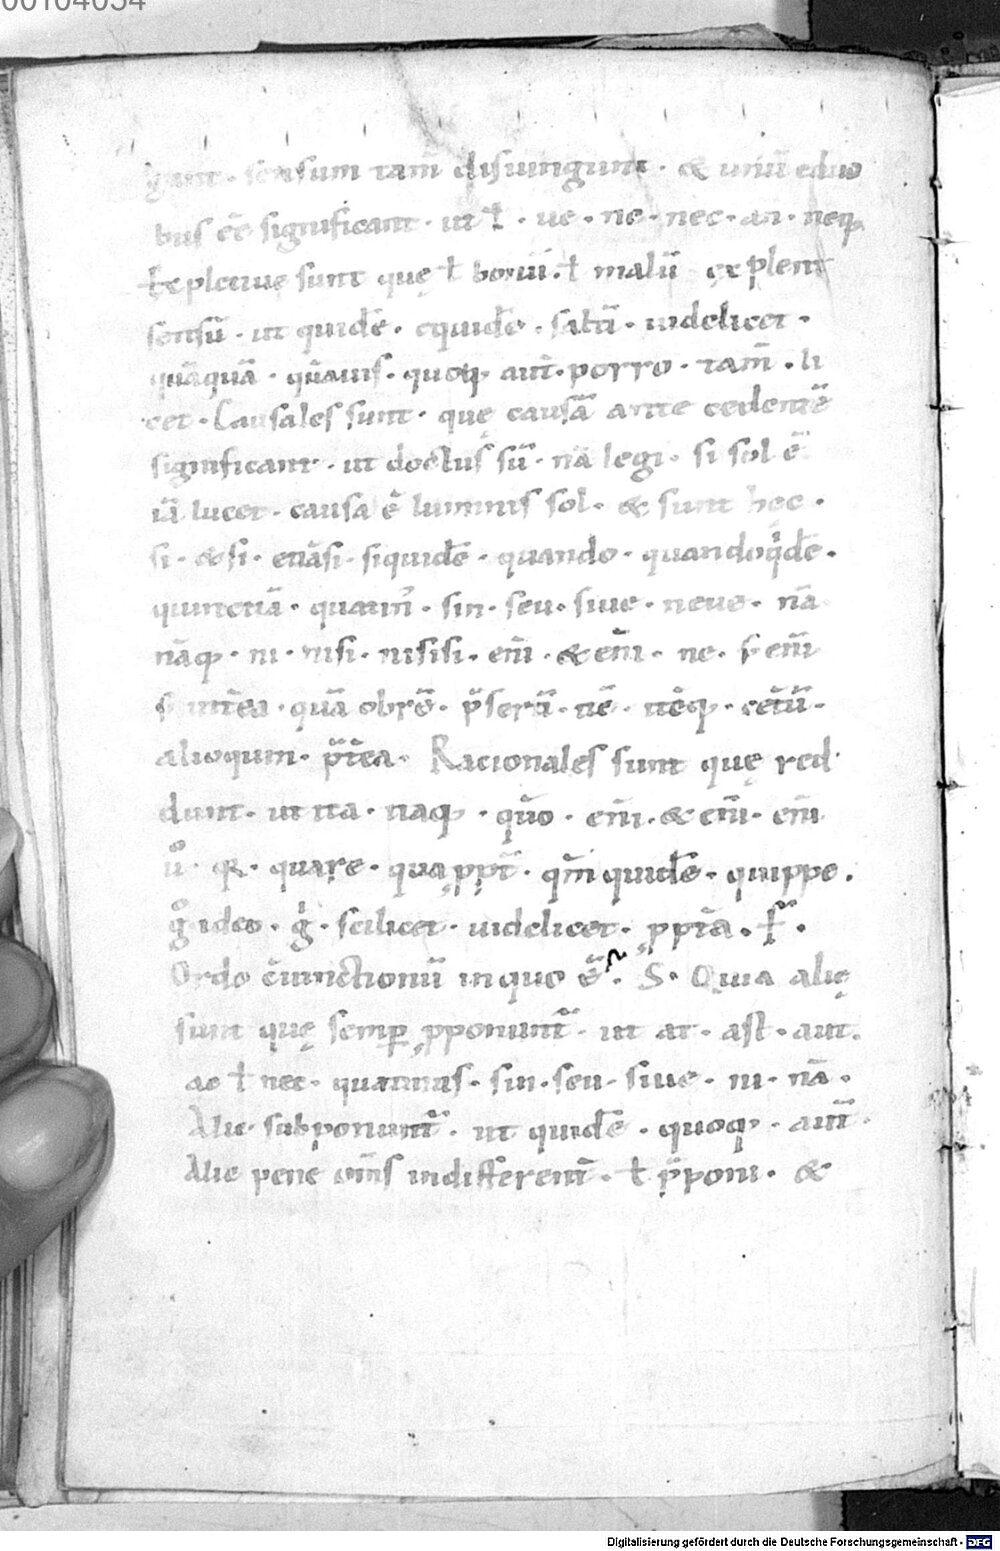 00104054
gunt · sensum tam̅ disiungunt · & unū eduo
bus eē significant · ut ł · ue · ne · nec · an · neq;
Expletiuę sunt quę ł bonū · ł malū explent
sensū · ut quidē · equidē · saltī · uidelicet ·
quāquā · quāuis · quoq; aut̅ · porro · tam̅ · li
cet · Causales sunt · quę causā ante cedentē
significant · ut doctus sū · nā legi · si sol ē
iā lucet · causa ē luminis sol · & sunt hec ·
si · &si · etiāsi · siquidē · quando · quandoqͥdē ·
quinetiā · quatin᷒ · sin · seu · siue · neue · nā
nāq; · ni · nisi · nisisi · eni̅ · & eni̅ · ne · s; eni̅
int̅ea · quā obrē · p̄sertī · nē · neq; · cet̅ū ·
alioquin · p̄t̅ea · Racionales sunt quę red
dunt · ut ita · itaq; · qͦ · eni̅ · & eni̅ · eni̅
uͦ · qꝛ · quare · quaꝓpt̅ · qm̅ quidē · quippe ·
gͦ ideo · gͥ · scilicet · uidelicet · ꝓpt̅ea ·
Ordo c̄iunctionū inquo ē · S · Quia alię
sunt quę semꝑ p̄ponunt̅ · ut at · ast · aut ·
ac ł nec · quatinus · sin · seu · siue · ni · nā ·
Alie subponunt̅ · ut quidē · quoq; · aut̅ ·
Alie pene om̅s indifferent̅ · ł p̄poni · &
Digitalisierung gefördert durch die Deutsche Forschungsgemeinschaft - DFG